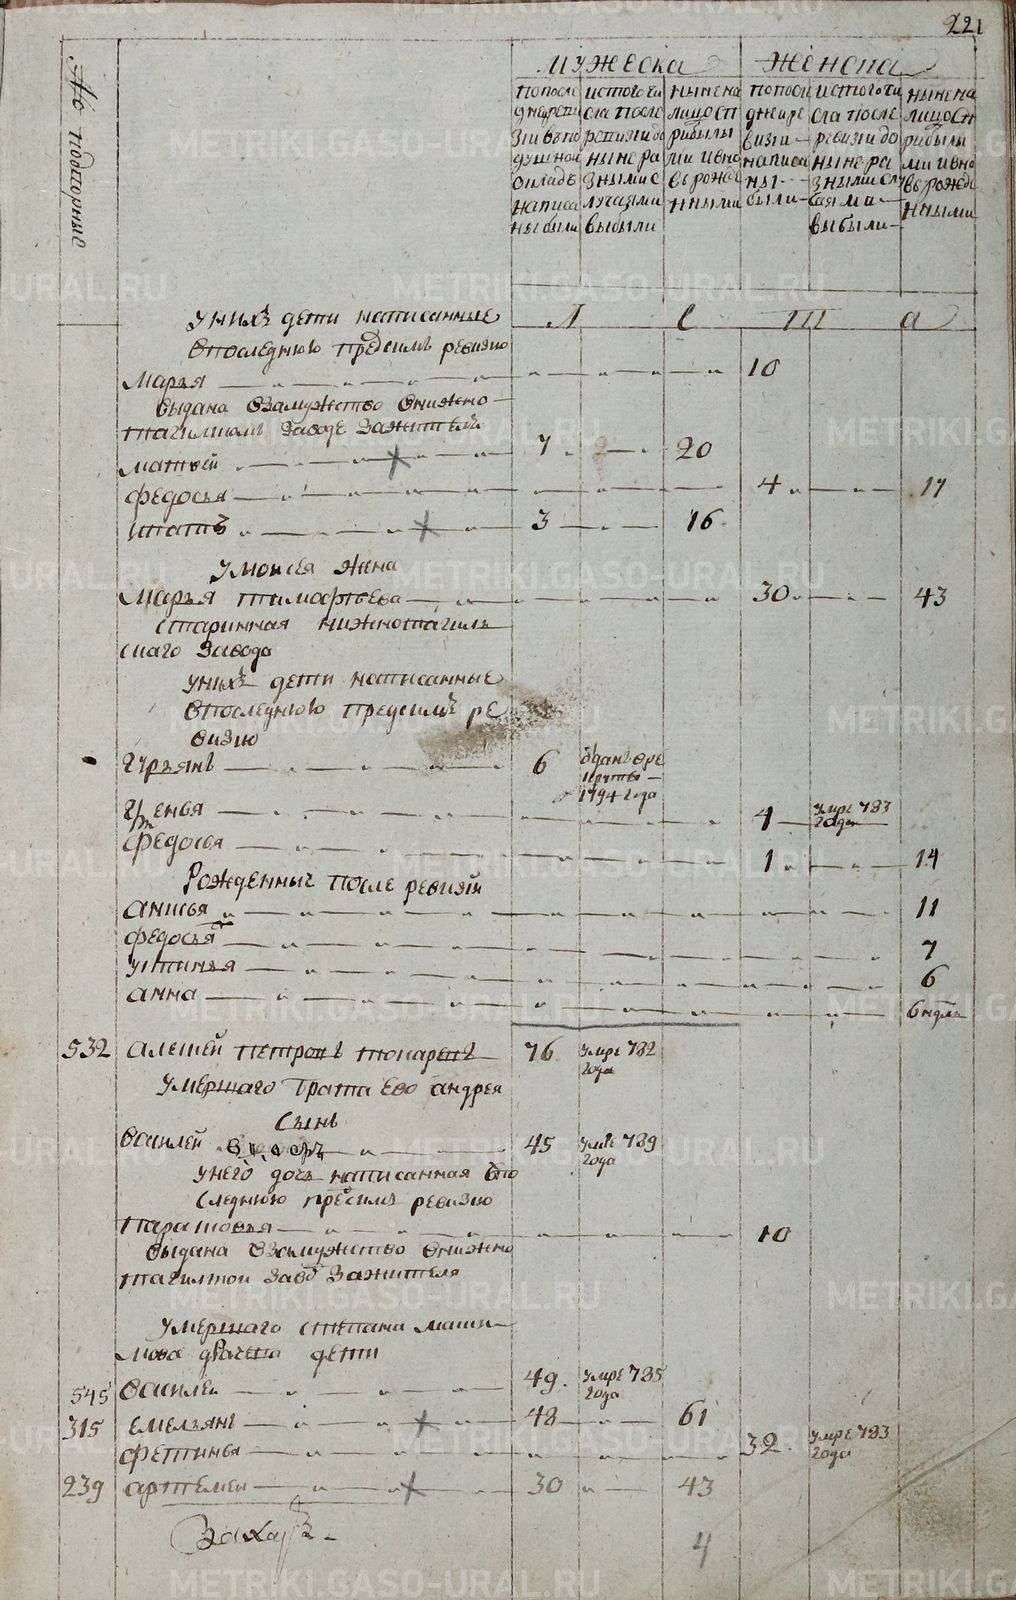 221
№ подворные
мужеска
женска
попосле
дней реви
зии въпо
душной
окладъ
написа
ны были
ис того чи
сла после
ревизии до
ныне ра
зными с
лучаями
выбыли
ныне на
лицо съп
рибылы
ми и вно
вь рожде
нными
попосле
дней ре
визии
написа
ны
были
ис того чи
сла после
ревизии до
ныне ра
зными слу
чаями
выбыли
ныне на
лицо съп
рибылы
ми и вно
вь рожде
нными
Л е т а
у нихъ дети написанные
впоследнюю предсимъ ревизию
Марья 10
выдана взамужство внижно
тагилскомъ заводе зажителя
матвей 7 20
федосья 4 17
ипатъ 3 16
у моисея жена
Марья тимофеева 30 43
старинная нижнотагиль
скаго завода
у нихъ дети написанные
впоследнюю предсимъ ре
визию
гурьянъ 6 зданъ вре
круты
1794 года
4 умре 783
года
федосья 1 14
Рожденные после ревизии
анисья 11
федосья 7
устинья 6
анна 6 недель
532 алексей петровъ токаревъ 76 умре 782
года
умершаго брата ево андрея
сынъ
василей 45 умре 789
года
у него дочь написанная впо
следнюю пресимъ ревизию
парасковья 10
выдана взамужство внижно
тагилской завод зажителя
умершаго степана маши
мова дети
545 василей 49 умре 785
года
315 емельянъ 48 61
фетинья 32 умре 783
года
239 артемей 30 43
Захаръ
4
METRIKI.GASO-URAL.RU